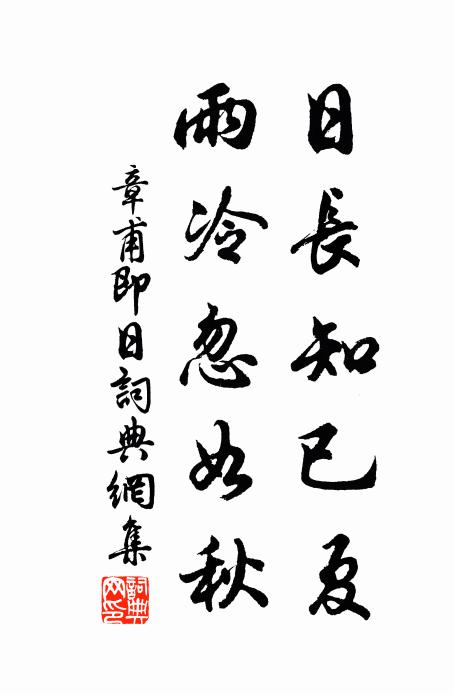 日長知已夏
雨冷忽如秋
章甫即日詞典網集
詞典
网印